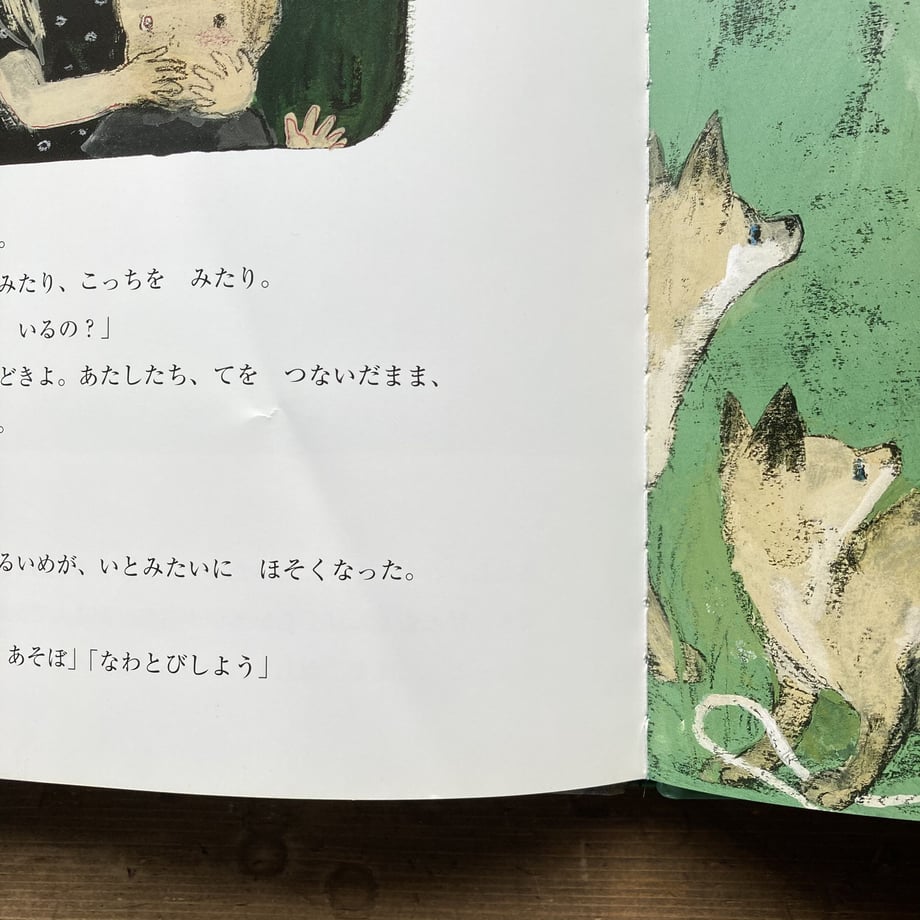 。
みたり、こっちを　みたり。
いるの？」
どきよ。あたしたち、てを　つないだまま、
。
るいめが、いとみたいに　ほそくなった。
あそぼ」「なわとびしよう」